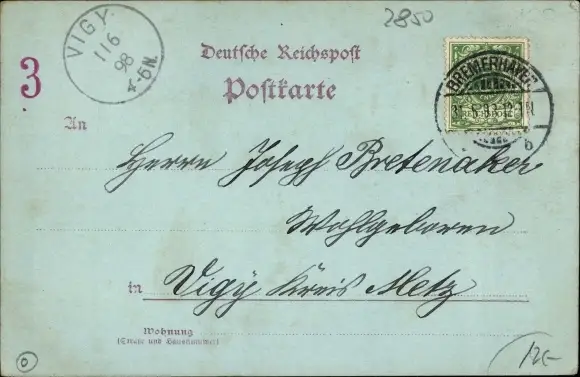 2850
VIGY
1 1 6
98
4-5N.
3
Deutsche Reichspost
Postkarte
BREMERHAVEN
b
An
Herrn Joseph Bretenaker
Wohlgeboren
in Vigy Kreis Metz
Wohnung
(Straße und Hausnummer)
0
12-